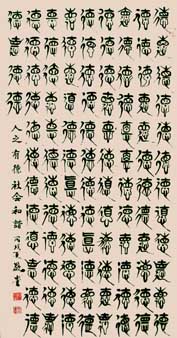 德德德德德德德德德德德德
德德德德德德德德德德德德
德德德德德德德德德德德德
德德德德德德德德德德德德
德德德德德德德德德德德德
德德德德德德德德德德德德
德德德德德德德德德德德德
德德德德
人之有德 社会和谐 丙戌夏